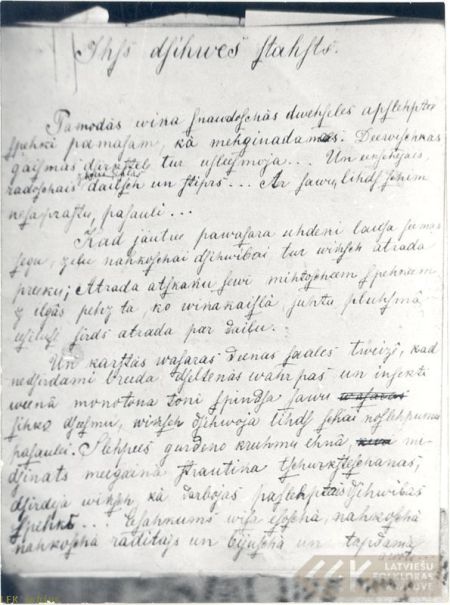 Ihss dsihwes stahsts.
Pamodās wiņa snaudoschās dwehseles apslehptee
spehki pamasam, kā mehginadamees. Deewischkas
gaismas dsirkstele tur usleesmoja... Un
radoschais dailsch un stiprs... Ar sawu, lihds schim
nesaprastu, pasauli...
Kad jautree pawasara uhdeni laida sawas
seju, un nahkoschai dsihwibai tur winsch atrada
preeku; Atrada atskaņu sewi mihtoscheem spehkeem
ilgās pehz ta, ko wiņa kaislā, juhtu pluhsmā
sirds atrada par dailu.
Un karstās wasaras deenas saules tweizē, kad
nedsirdami breeda dseltenās wahrpas un insekti
weenā monotonā toni spindsa sawu
sihko dseesmu, winsch dsihwoja lihds schai noslehpumu
pasaulei. Slehpees gurdeno kruhmu ehnā
meegainā strautiņa tschurksteschanas,
dsirdeja winsch, kā darbojas paslehptais dsihwibas
spehks... Esahkums wisa esoschā, nahkoschā
nahkoschā raditajs un bijuschā un
LFK
LATVIEŠU
FOLKLORAS
KRĀTUVE